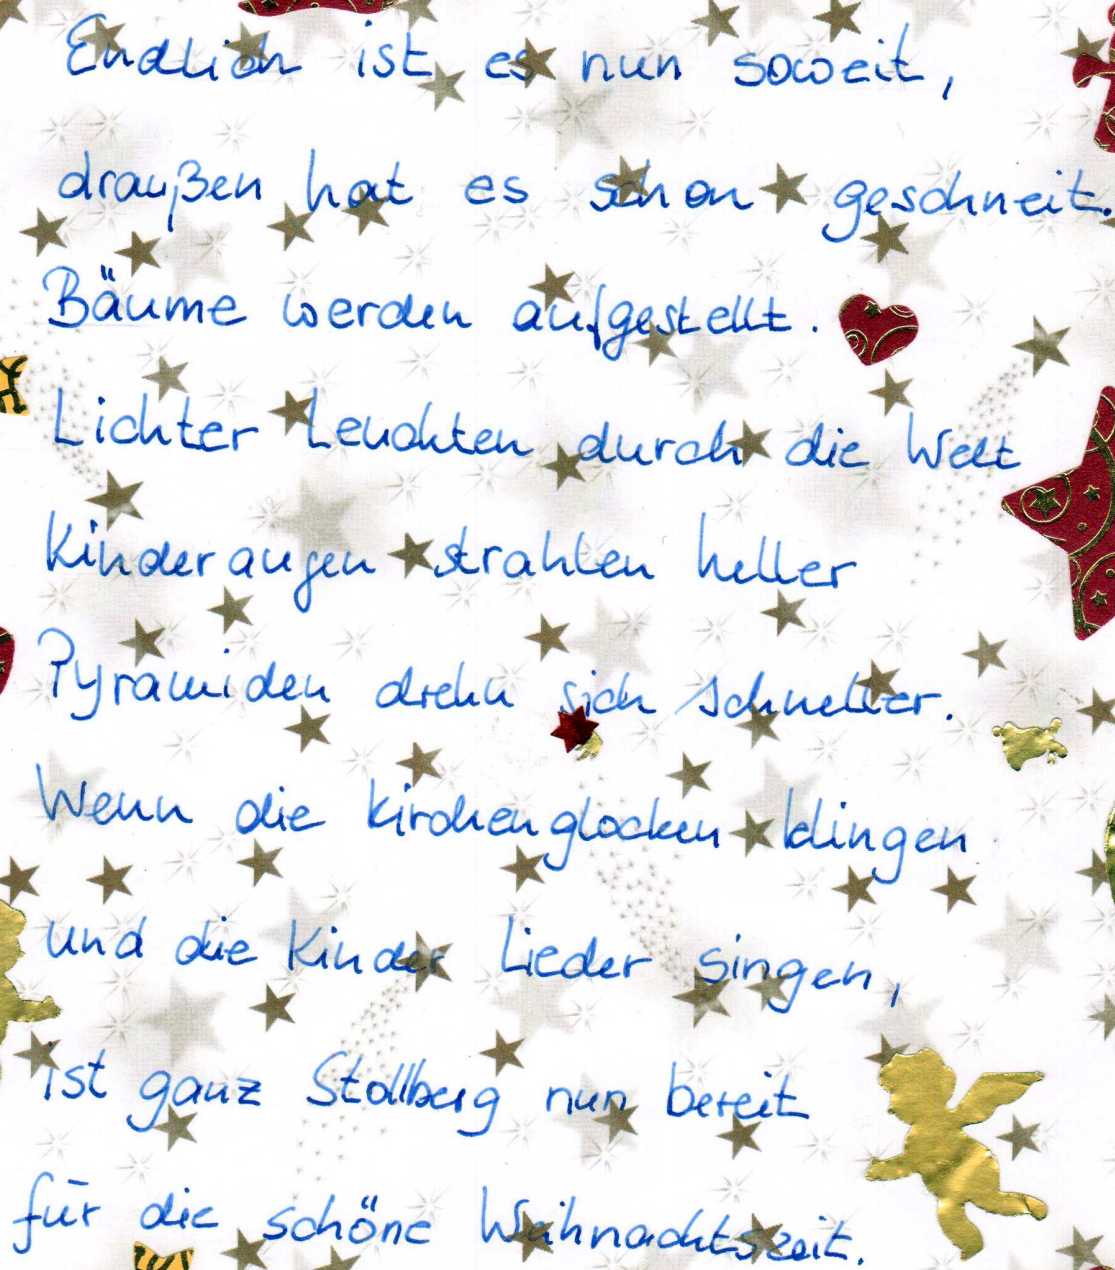 Endlich ist es nun soweit,
draußen hat es schon geschneit.
Bäume werden aufgestellt.
Lichter Leuchten durch die Welt
Kinderaugen strahlen heller
Pyramiden drehn sich schneller.
Wenn die Kirchenglocken klingen
und die Kinder Lieder singen,
ist ganz Stollberg nun bereit
für die schöne Weihnachtszeit.